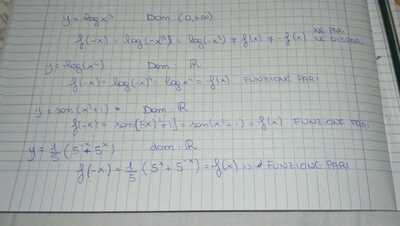 y = log x³ Dom (0,+∞)
f(-x) = log(-x³) = log(-x³) ≠ f(x) ≠ -f(x) NÉ PARI NÉ DISPARI
y = log(x²) Dom R
f(-x) = log(-x)² = log x² = f(x) FUNZIONE PARI
y = sen(x²+1) Dom R
f(-x) = sen[(-x)²+1] = sen(x²+1) = f(x) FUNZIONE PARI
y = 1/5 (5⁻ˣ+5ˣ) dom R
f(-x) = 1/5 (5ˣ + 5⁻ˣ) = f(x) FUNZIONE PARI